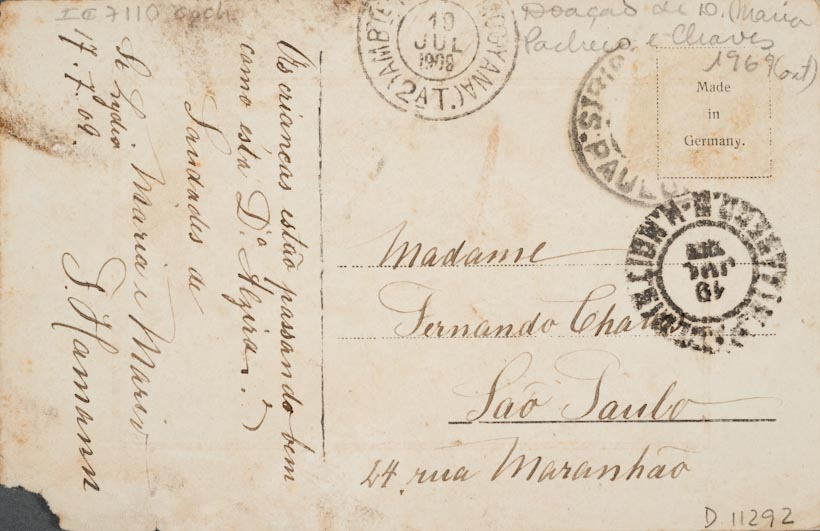 IC 7110 Coch.
Doação de D. Maria
Pacheco e Chaves
1969 (out)
19
JUL
1909
(2AT.)
Made
in
Germany.
PAULO
19
JUL
Os crianças estão passando bem
como está D.ª Alzira?
Saudades de
Maria e Mario
Sta Lydia
17.7.09.
Hamann
Madame
Fernando Chaves
São Paulo
24, rua Maranhão
D 11292